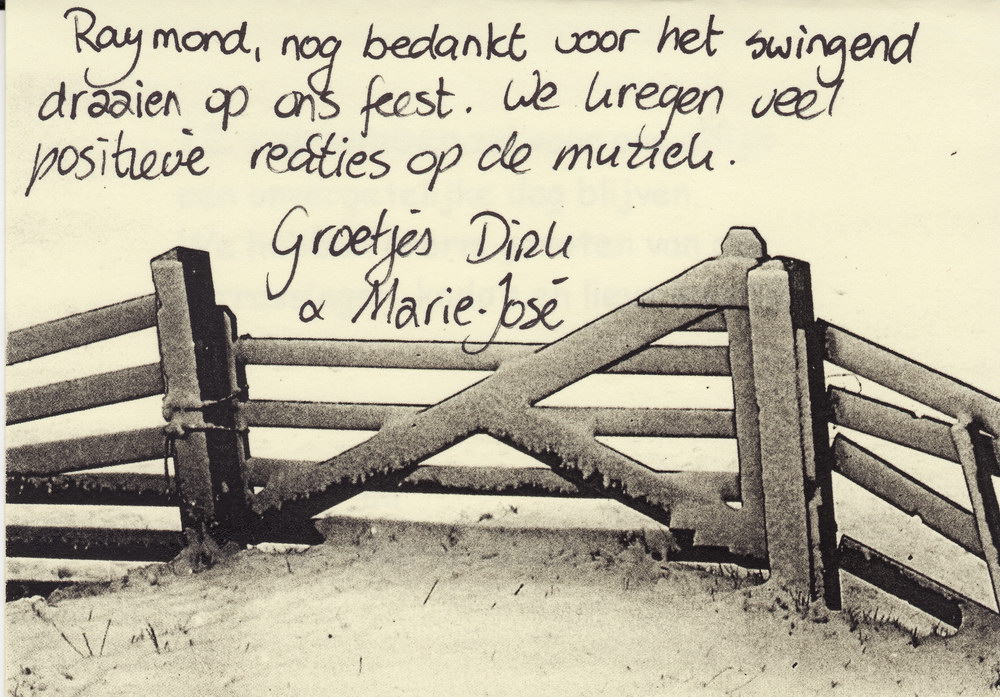 Raymond, nog bedankt voor het swingend
draaien op ons feest. We kregen veel
positieve reacties op de muziek.
Groetjes Dirk
& Marie-José